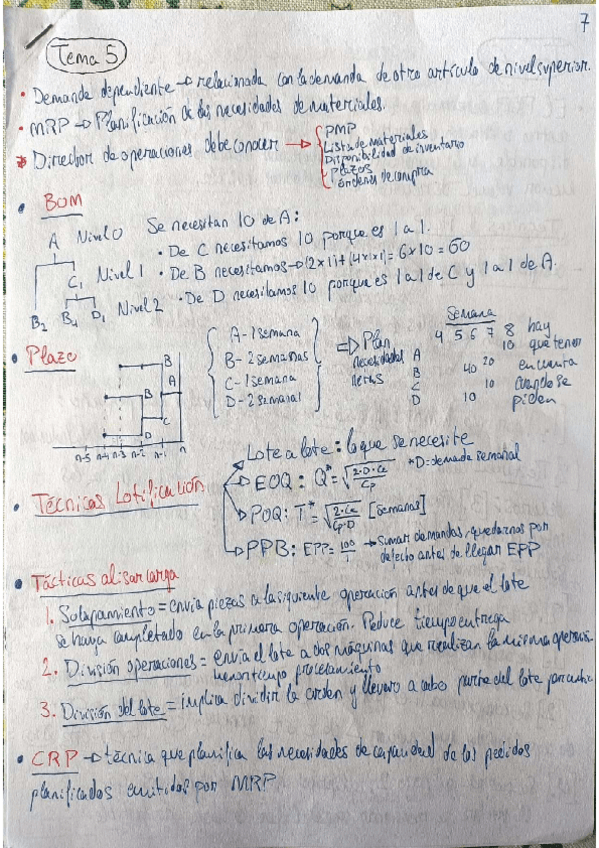 7
Tema 5
• Demanda dependiente → relacionada con la demanda de otro artículo de nivel superior.
• MRP → Planificación de las necesidades de materiales.
* Director de operaciones debe conocer →
PMP
Lista de materiales
Disponibilidad de inventario
Plazos
órdenes de compra
• BOM
A Nivel 0 Se necesitan 10 de A:
• De C necesitamos 10 porque es 1 a 1.
C1 Nivel 1 • De B necesitamos → (2x1)+(4x1x1)=6x10=60
B2 B4 D1 Nivel 2 • De D necesitamos 10 porque es 1 a 1 de C y 1 a 1 de A.
• Plazo
B
A
B
C
D
n-5 n-4 n-3 n-2 n-1 n
A-1 semana
B-2 semanas
C-1 semana
D-2 semanas
⇒ Plan necesidades netas
Semana
4 5 6 7 8
A 10
B 40 20
C 10
D 10
hay que tener en cuenta cuando se piden
• Técnicas Lotificación
Lote a lote: lo que se necesite
EOQ: Q* = √(2·D·Ce/Cp) *D=demanda semanal
POQ: T* = √(2·Ce/Cp·D) [semanas]
PPB: EPP = 100/1 → Sumar demandas, quedarnos por defecto antes de llegar EPP
• Tácticas alisar carga
1. Solapamiento = envía piezas a la siguiente operación antes de que el lote
se haya completado en la primera operación. Reduce tiempo entrega
2. División operaciones = envía el lote a dos máquinas que realizan la misma operación.
menor tiempo procesamiento
3. División del lote = implica dividir la orden y llevar a cabo parte del lote
• CRP → técnica que planifica las necesidades de capacidad de los pedidos
planificados emitidos por MRP